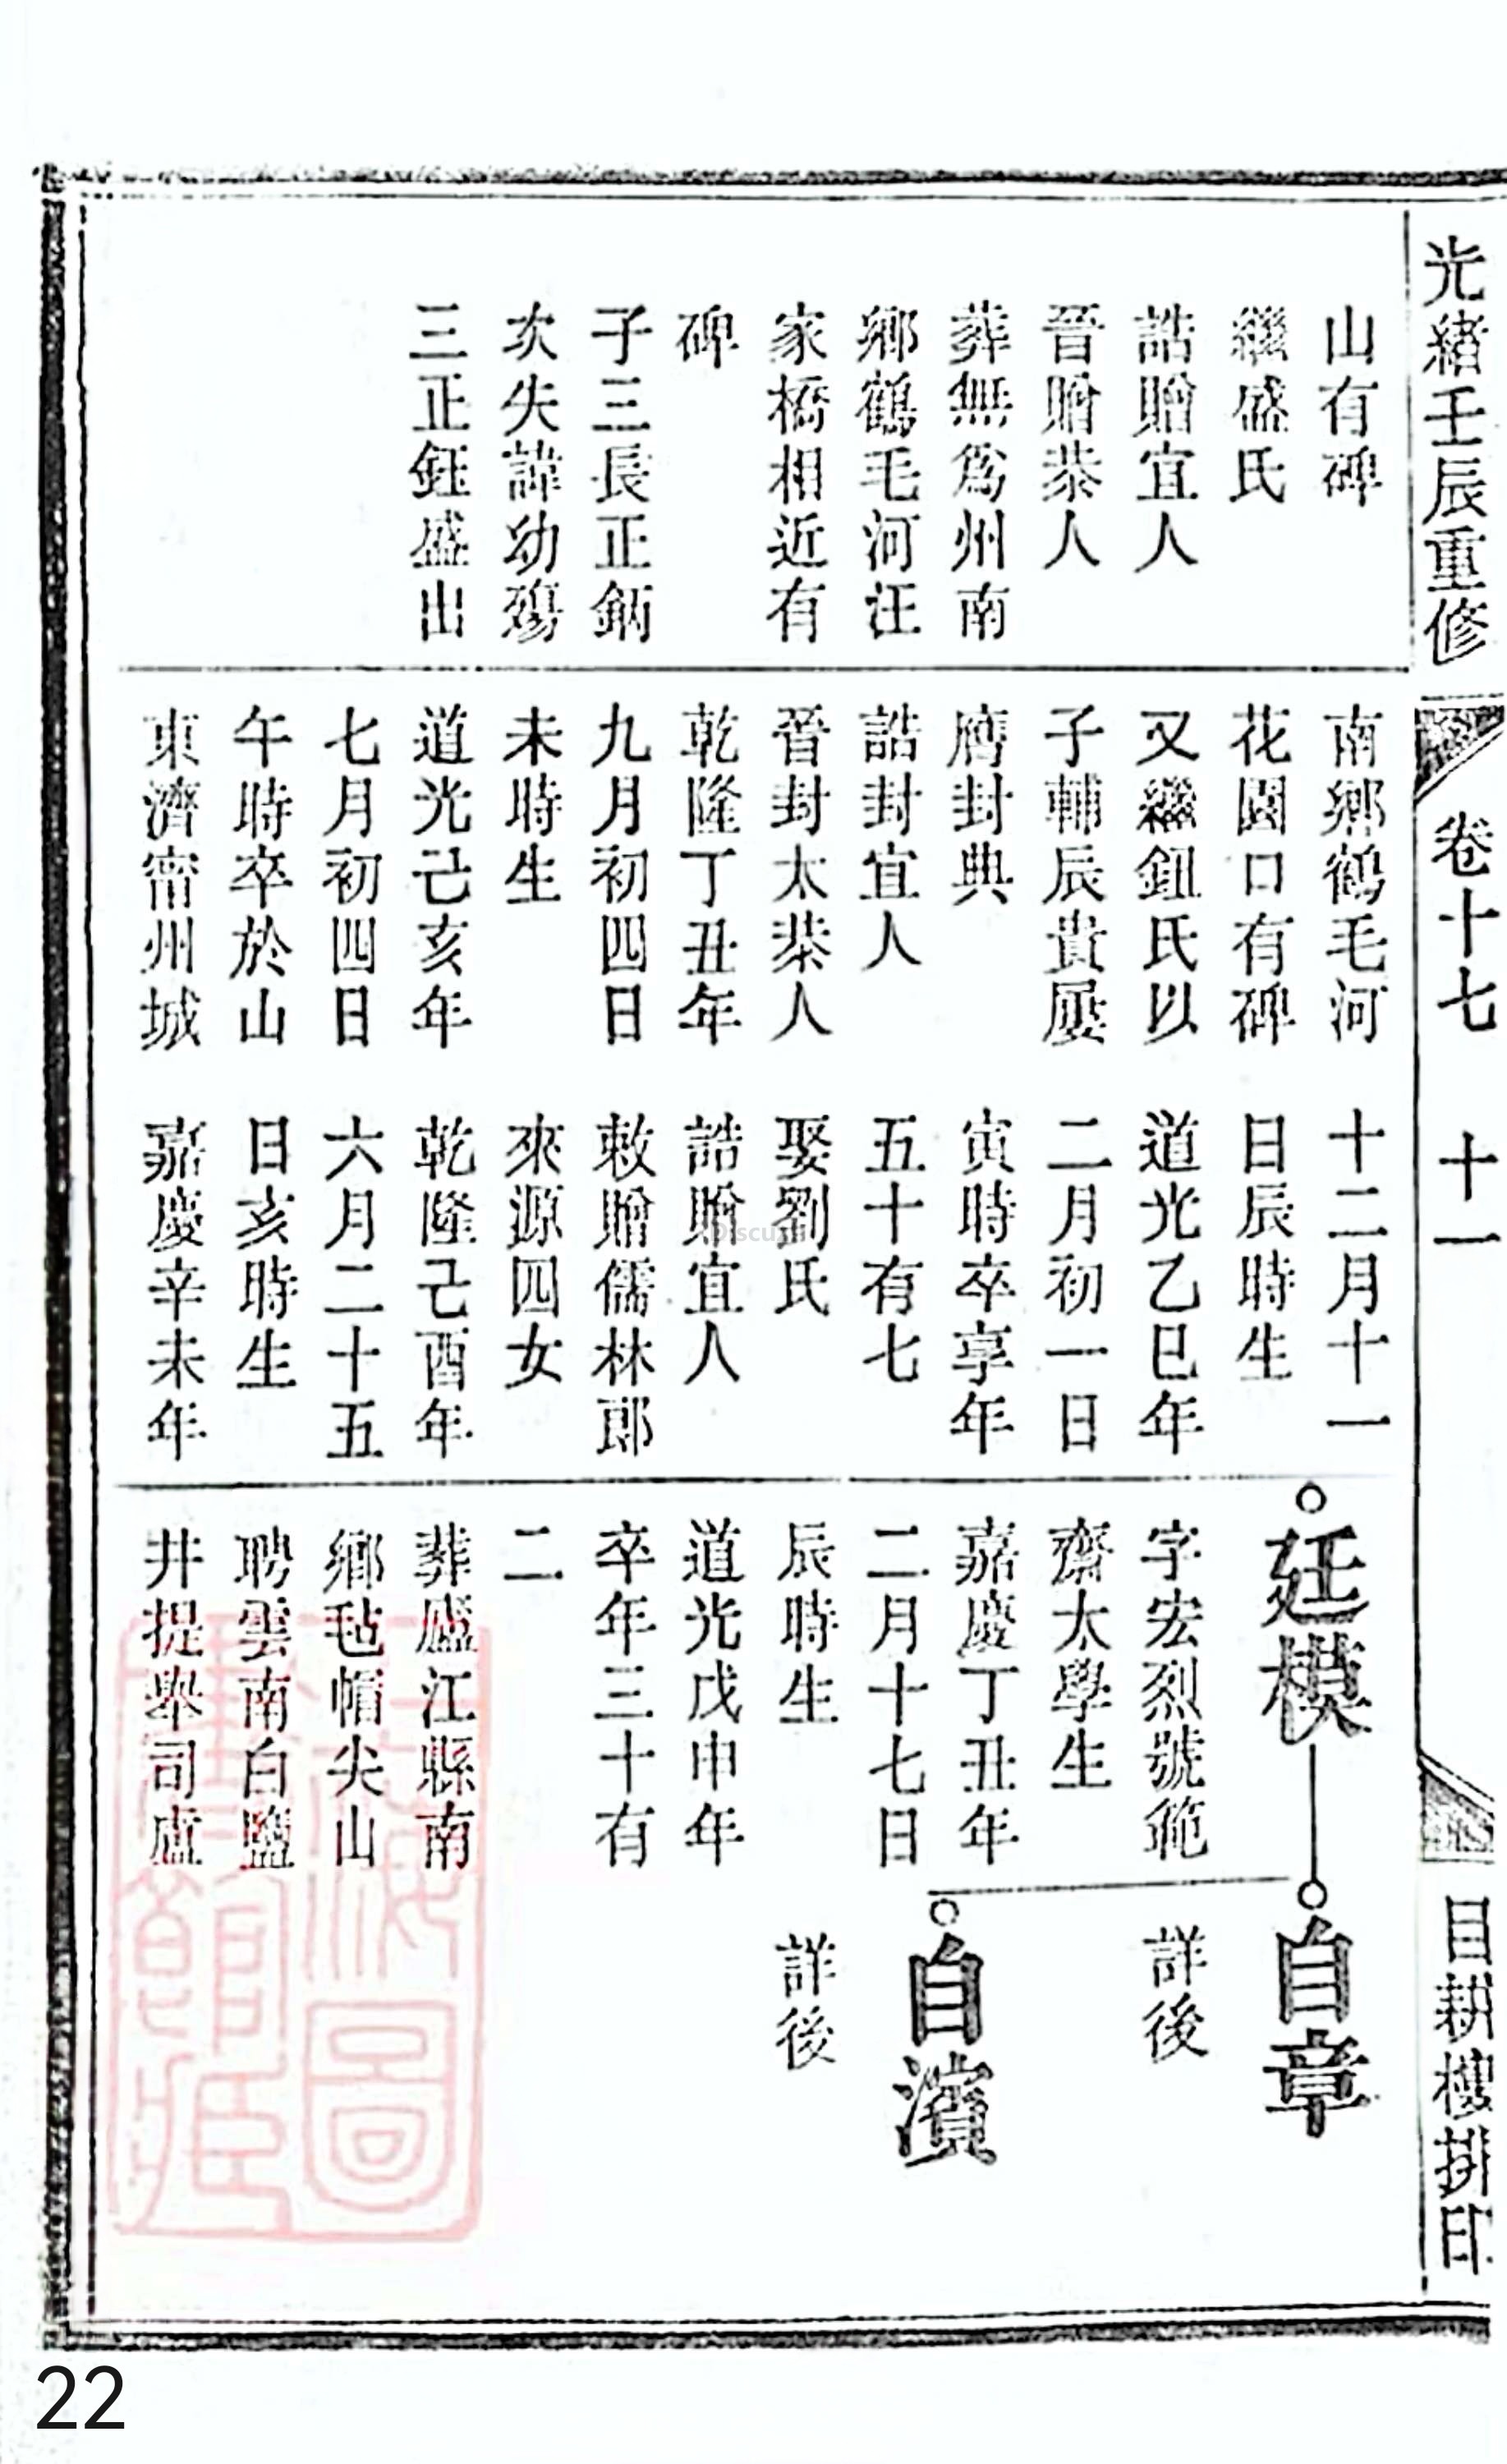 光緒壬辰重修
卷十七
十一
目耕樓排印
山有碑
繼盛氏
誥贈宜人
晉贈恭人
葬無爲州南
鄉鶴毛河汪
家橋相近有
碑
子三長正鈵
次失諱幼殤
三正鈺盛出
南鄉鶴毛河
花園口有碑
又繼鈕氏以
子輔辰貴屢
膺封典
誥封宜人
晉封太恭人
乾隆丁丑年
九月初四日
未時生
道光己亥年
七月初四日
午時卒於山
東濟甯州城
十二月十一
日辰時生
道光乙巳年
二月初一日
寅時卒享年
五十有七
娶劉氏
誥贈宜人
敕贈儒林郎
來源四女
乾隆己酉年
六月二十五
日亥時生
嘉慶辛未年
廷模
字宏烈號範
齋太學生
嘉慶丁丑年
二月十七日
辰時生
道光戊申年
卒年三十有
二
葬廬江縣南
鄉毡帽尖山
聘雲南白鹽
井提舉司盧
自章
詳後
自濱
詳後
22